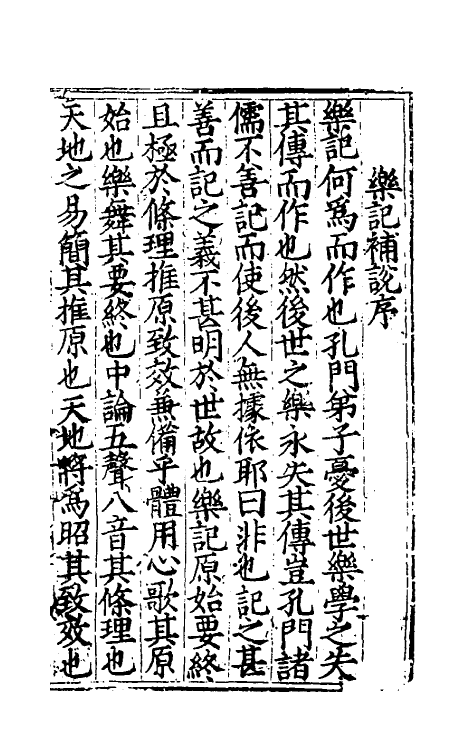 樂記補說序
樂記何爲而作也孔門弟子憂後世樂學之失
其傳而作也然後世之樂永失其傳豈孔門諸
儒不善記而使後人無據依耶曰非也記之甚
善而記之義不甚明於世故也樂記原始要終
且極於條理推原致效兼備乎體用心歌其原
始也樂舞其要終也中論五聲八音其條理也
天地之易簡其推原也天地將爲昭其致效也